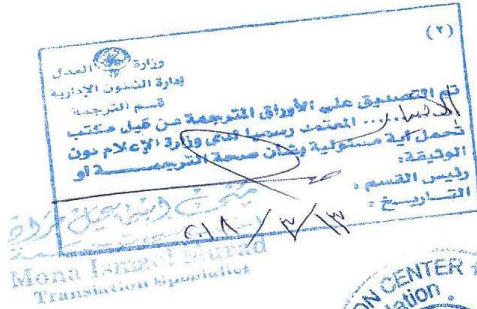 (٢)
وزارة العدل
إدارة الشئون الإدارية
قسم الترجمة
تم التصديق على الأوراق المترجمة من قبل مكتب
..... المعتمد رسميا لدى وزارة الإعلام دون
تحمل أية مسئولية بشأن صحة الترجمــــة او
الوثيقة:
رئيس القسم :
التــاريــخ : ٢٠١٨/٣/١٣
منى إسماعيل مراد
Mona Ismaeel Murad
Translation Specialist
N CENTER
lation